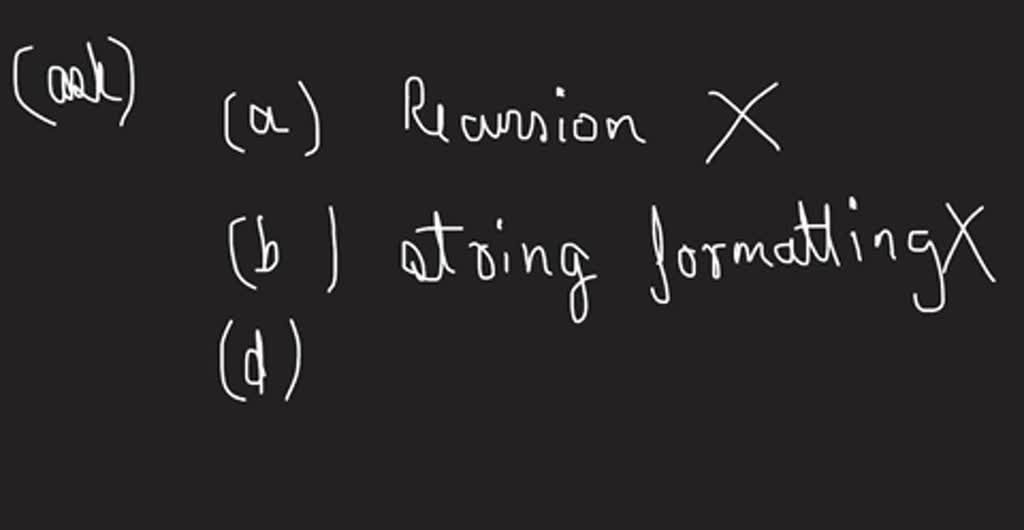 (ask)
(a) Recursion X
(b) string formatting X
(d)